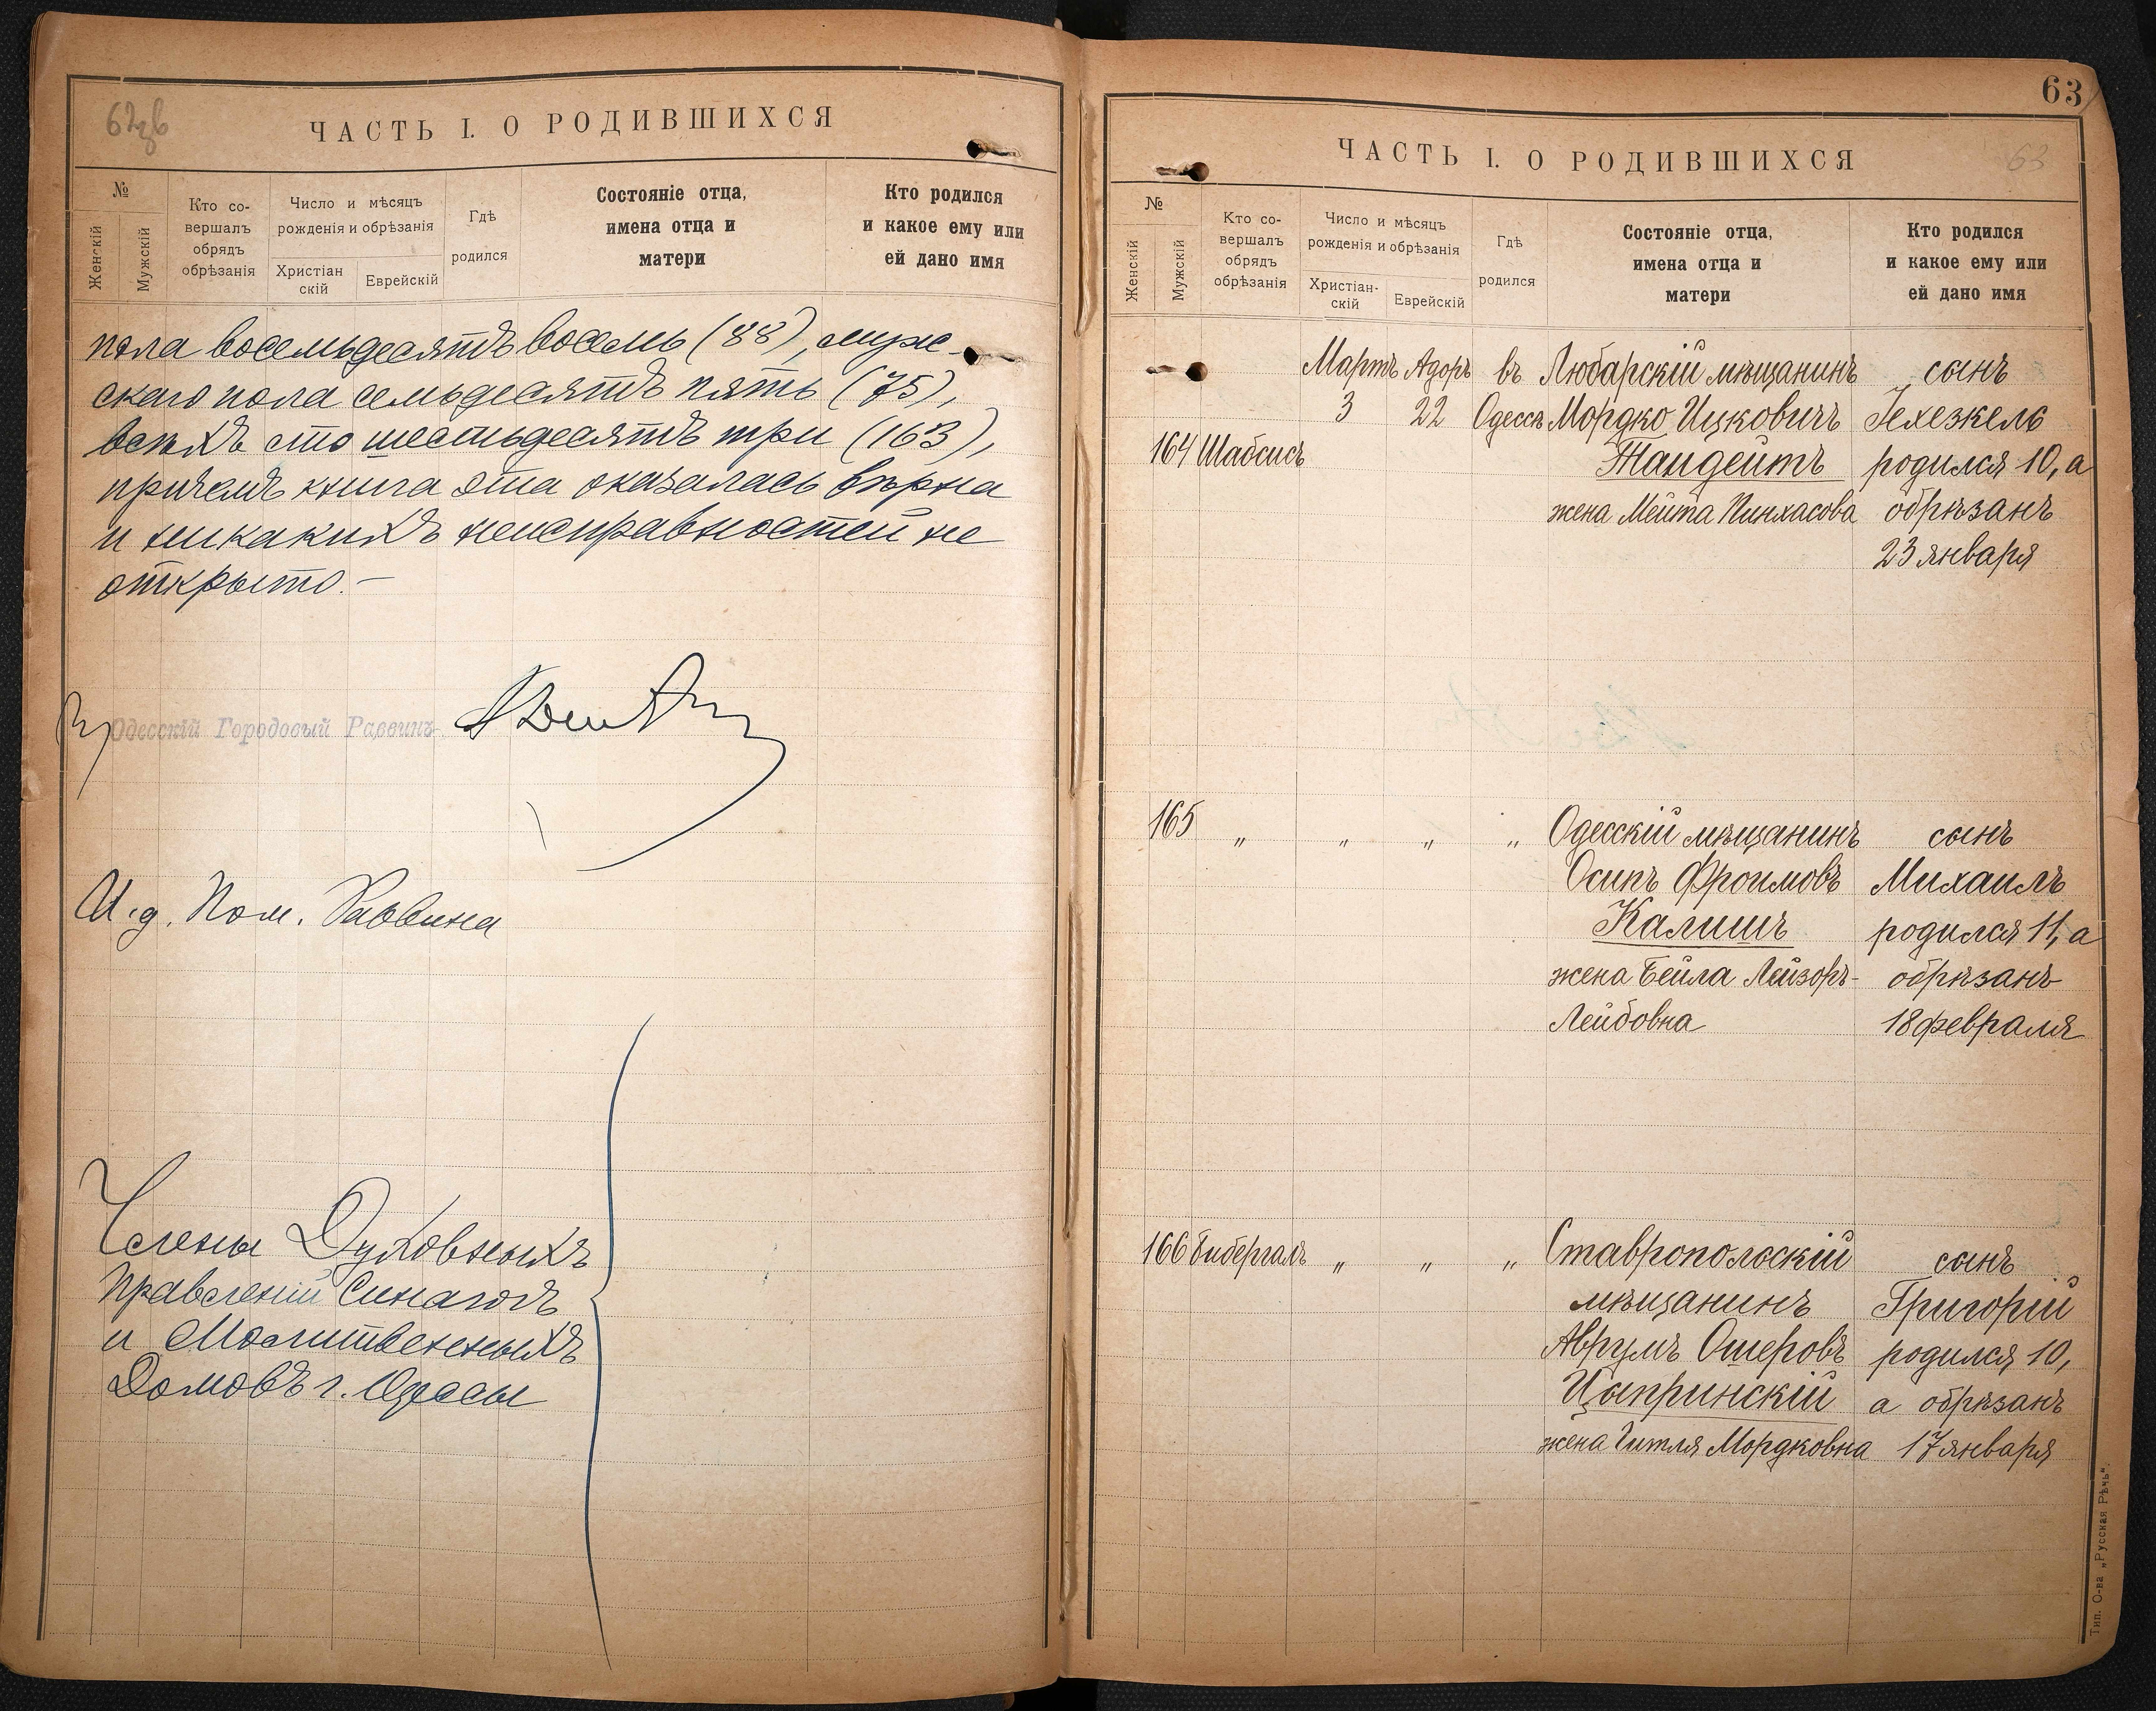 62зв
ЧАСТЬ I. О РОДИВШИХСЯ
№
Женскій
Мужскій
Кто со-
вершалъ
обрядъ
обрѣзанія
Число и мѣсяцъ
рожденія и обрѣзанія
Христіан
скій
Еврейскій
Гдѣ
родился
Состояніе отца,
имена отца и
матери
Кто родился
и какое ему или
ей дано имя
пола восемьдесятъ восемь (88), муж-
скаго пола семьдесятъ пять (75),
всѣхъ сто шестьдесятъ три (163),
причемъ книга эта оказалась вѣрна
и никакихъ неисправностей не
открыто.—
Одесскій Городовый Раввинъ
И.д. Пом. Раввина
Члены Духовныхъ
Правленій Синагогъ
и Молитвенныхъ
Домовъ г. Одессы
63
ЧАСТЬ I. О РОДИВШИХСЯ
63
№
Женскій
Мужскій
Кто со-
вершалъ
обрядъ
обрѣзанія
Число и мѣсяцъ
рожденія и обрѣзанія
Христіан-
скій
Еврейскій
Гдѣ
родился
Состояніе отца,
имена отца и
матери
Кто родился
и какое ему или
ей дано имя
Мартъ Адоръ въ Любарскій мѣщанинъ сынъ
3 22 Одессѣ Мордко Ицковичъ Іехезкель
164 Шабсисъ Тандейтъ родился 10, а
жена Мейта Пинхасова обрѣзанъ
23 января
165 " " " " Одесскій мѣщанинъ сынъ
Осипъ Фроимовъ Михаилъ
Калишъ родился 11, а
жена Бейла Лейзоръ- обрѣзанъ
Лейбовна 18 февраля
166 Бибергалъ " " " Ставропольскій сынъ
мѣщанинъ Григорій
Аврумъ Ошеровъ родился 10,
Цыпринскій а обрѣзанъ
жена Гитля Мордковна 17 января
Тип. О-ва „Русская Рѣчь".